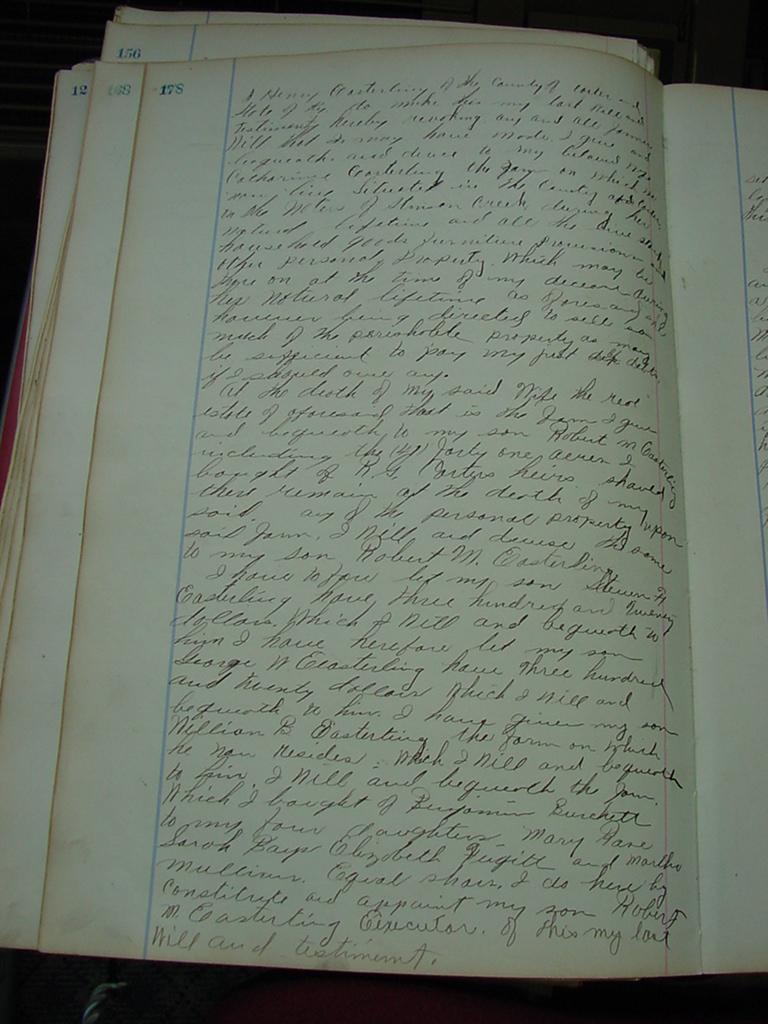 156
12
168
178
I Henry Easterling of the County of Carter and
State of Ky do make this my last Will and
testimenty hereby revoking any and all former
Will that I may have made. I give and
bequeath and devise to my beloved Wife
Catharine Easterling the farm on which we
now live situated in the County
on the Waters of Stinson Creek during her
natural lifetime and all the live stock
household goods furniture Provisions and
other personal Property. Which may be
there on at the time of my decease during
her natural lifetime as aforesaid
however being directed to sell
much of the perishable property as may
be sufficient to pay my just debts
if I should owe any.
At the death of my said Wife the real
estate of aforesaid that is the farm I give
and bequeath to my son Robert M Easterling
including the (41) forty one acres I
bought of R. G. Carters heirs, should
there remain at the death of my
said any of the personal property upon
said farm. I Will and devise the same
to my son Robert M. Easterling
I have to fore let my son Steven
Easterling have three hundred and twenty
dollars. Which I Will and bequeath to
him I have herefore let my son
George W Easterling have three hundred
and twenty dollars which I Will and
bequeath to him. I have given my son
William B. Easterling the farm on which
he now resides. Which I Will and bequeath
to him. I Will and bequeath the farm.
Which I bought of Benjamin Burchett
to my four daughters Mary
Sarah Elizabeth Fugitt and Martha
Mullins. Equal share. I do here by
Constitute and appoint my son Robert
M. Easterling Executor. of this my last
Will and testiment.